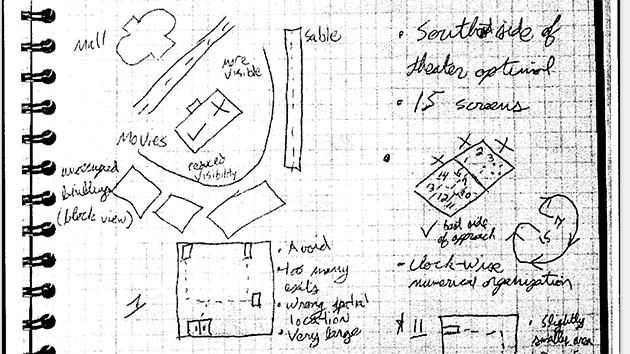 Mall
more
visible
Sable
Movies
reduced
visibility
unoccupied
buildings
(block view)
• Southside of
theater optimal
• 15 screens
X X
X
2 3
14
13 12 11
✓ best side
of approach
- Clock-wise
numerical organization
1
• Avoid
• too many
exits
• Wrong
location
• Very large
* 11
• Slightly